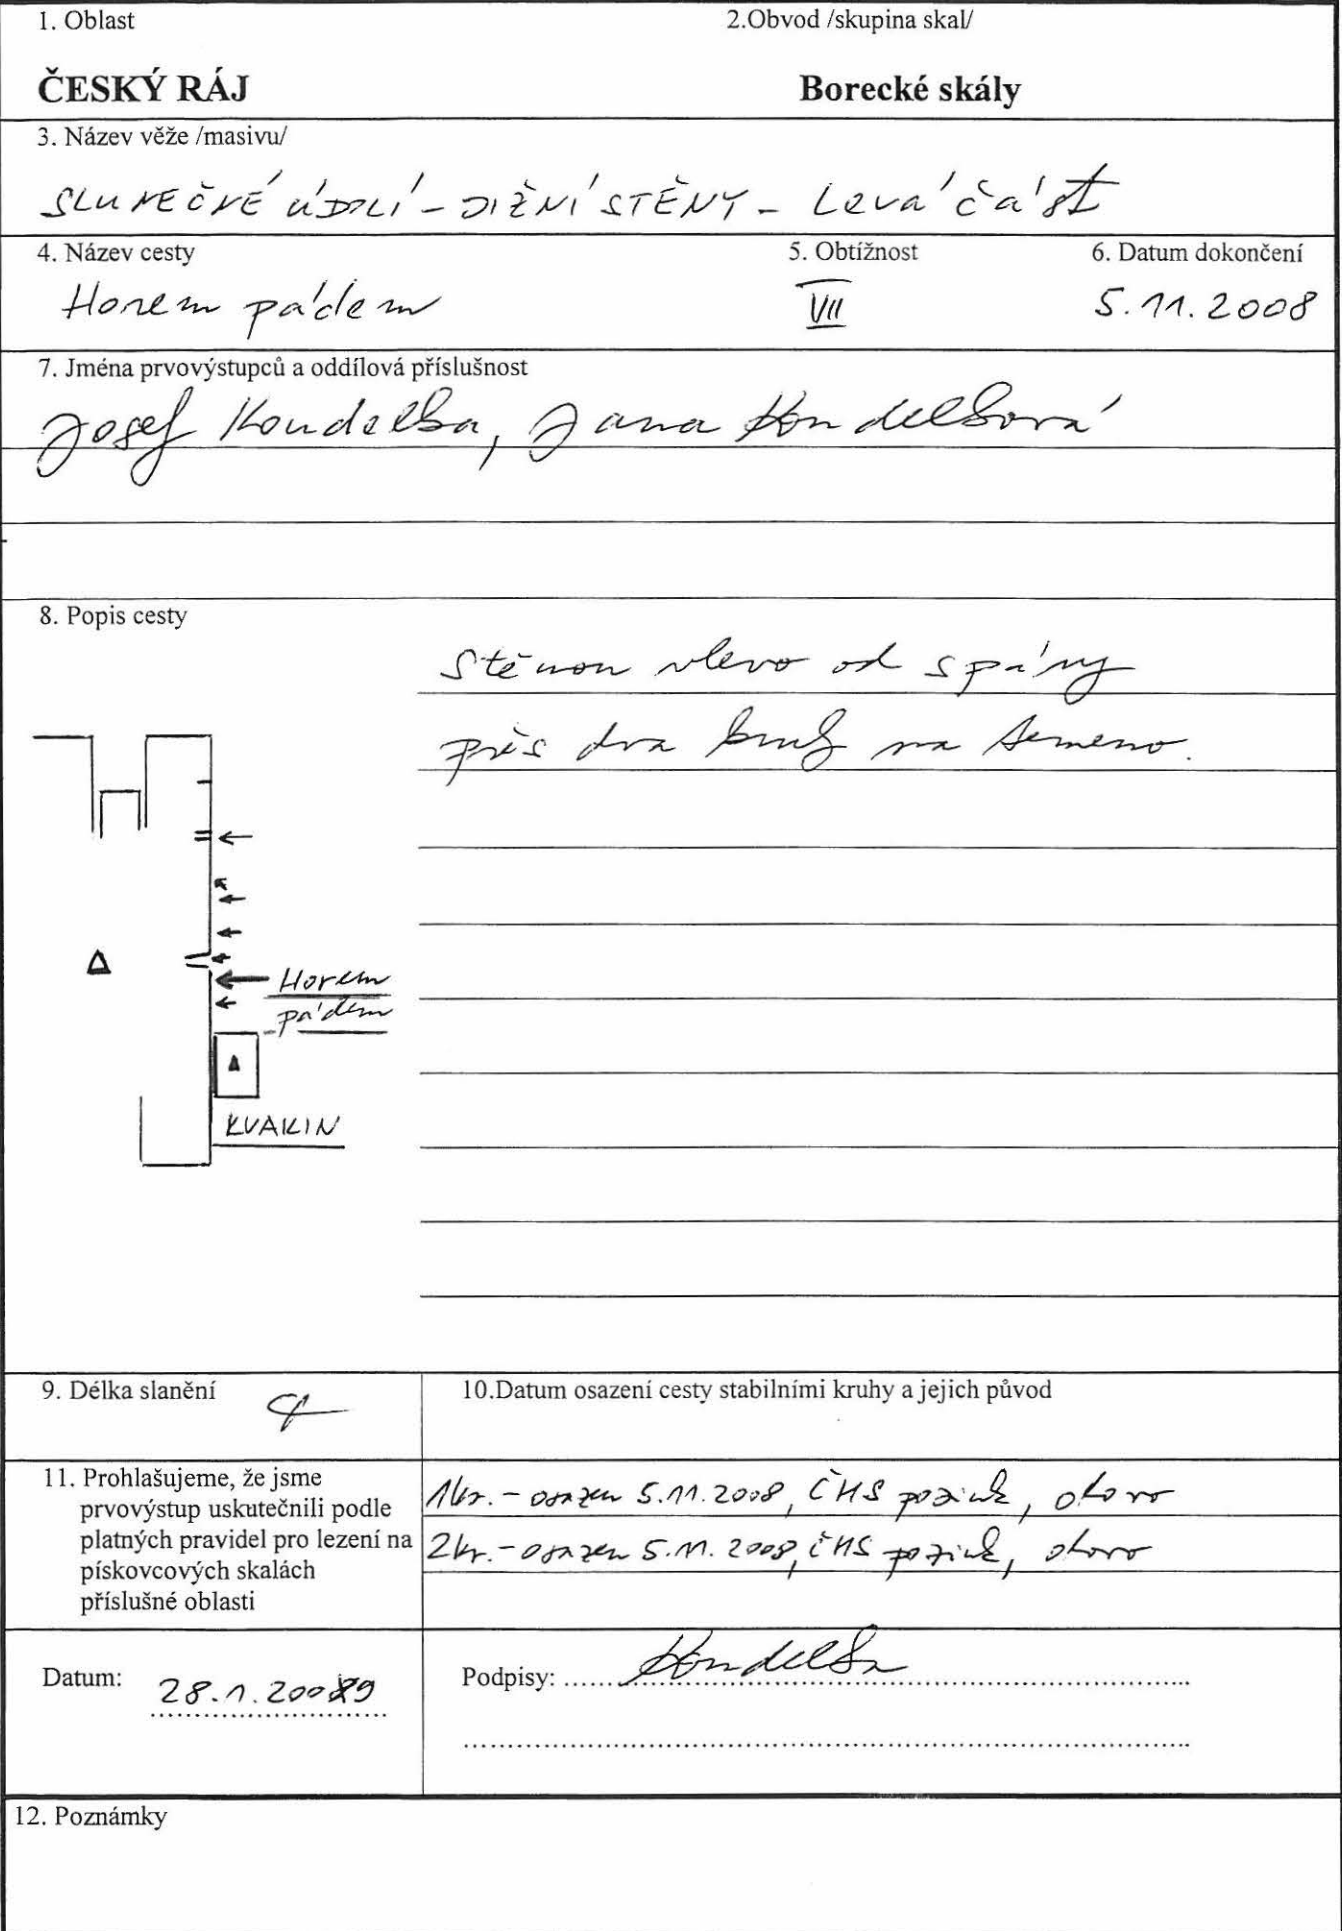 1. Oblast
2.Obvod /skupina skal/
ČESKÝ RÁJ
Borecké skály
3. Název věže /masivu/
SLUNEČNÉ ÚDOLÍ - JIŽNÍ STĚNY - Levá část
4. Název cesty
5. Obtížnost
6. Datum dokončení
Horem pádem
VII
5.11.2008
7. Jména prvovýstupců a oddílová příslušnost
Josef Koudelka, Jana Koudelková
8. Popis cesty
Stěnou vlevo od spáry
přes dva kruhy na temeno.
Horem
pádem
KVAKIN
9. Délka slanění
10.Datum osazení cesty stabilními kruhy a jejich původ
11. Prohlašujeme, že jsme
prvovýstup uskutečnili podle
platných pravidel pro lezení na
pískovcových skalách
příslušné oblasti
1kr. - osazen 5.11.2008, ČHS pozink, okovo
2kr. - osazen 5.11.2008, ČHS pozink, okovo
Datum:
28.1.2009
Podpisy:
Koudelka
12. Poznámky